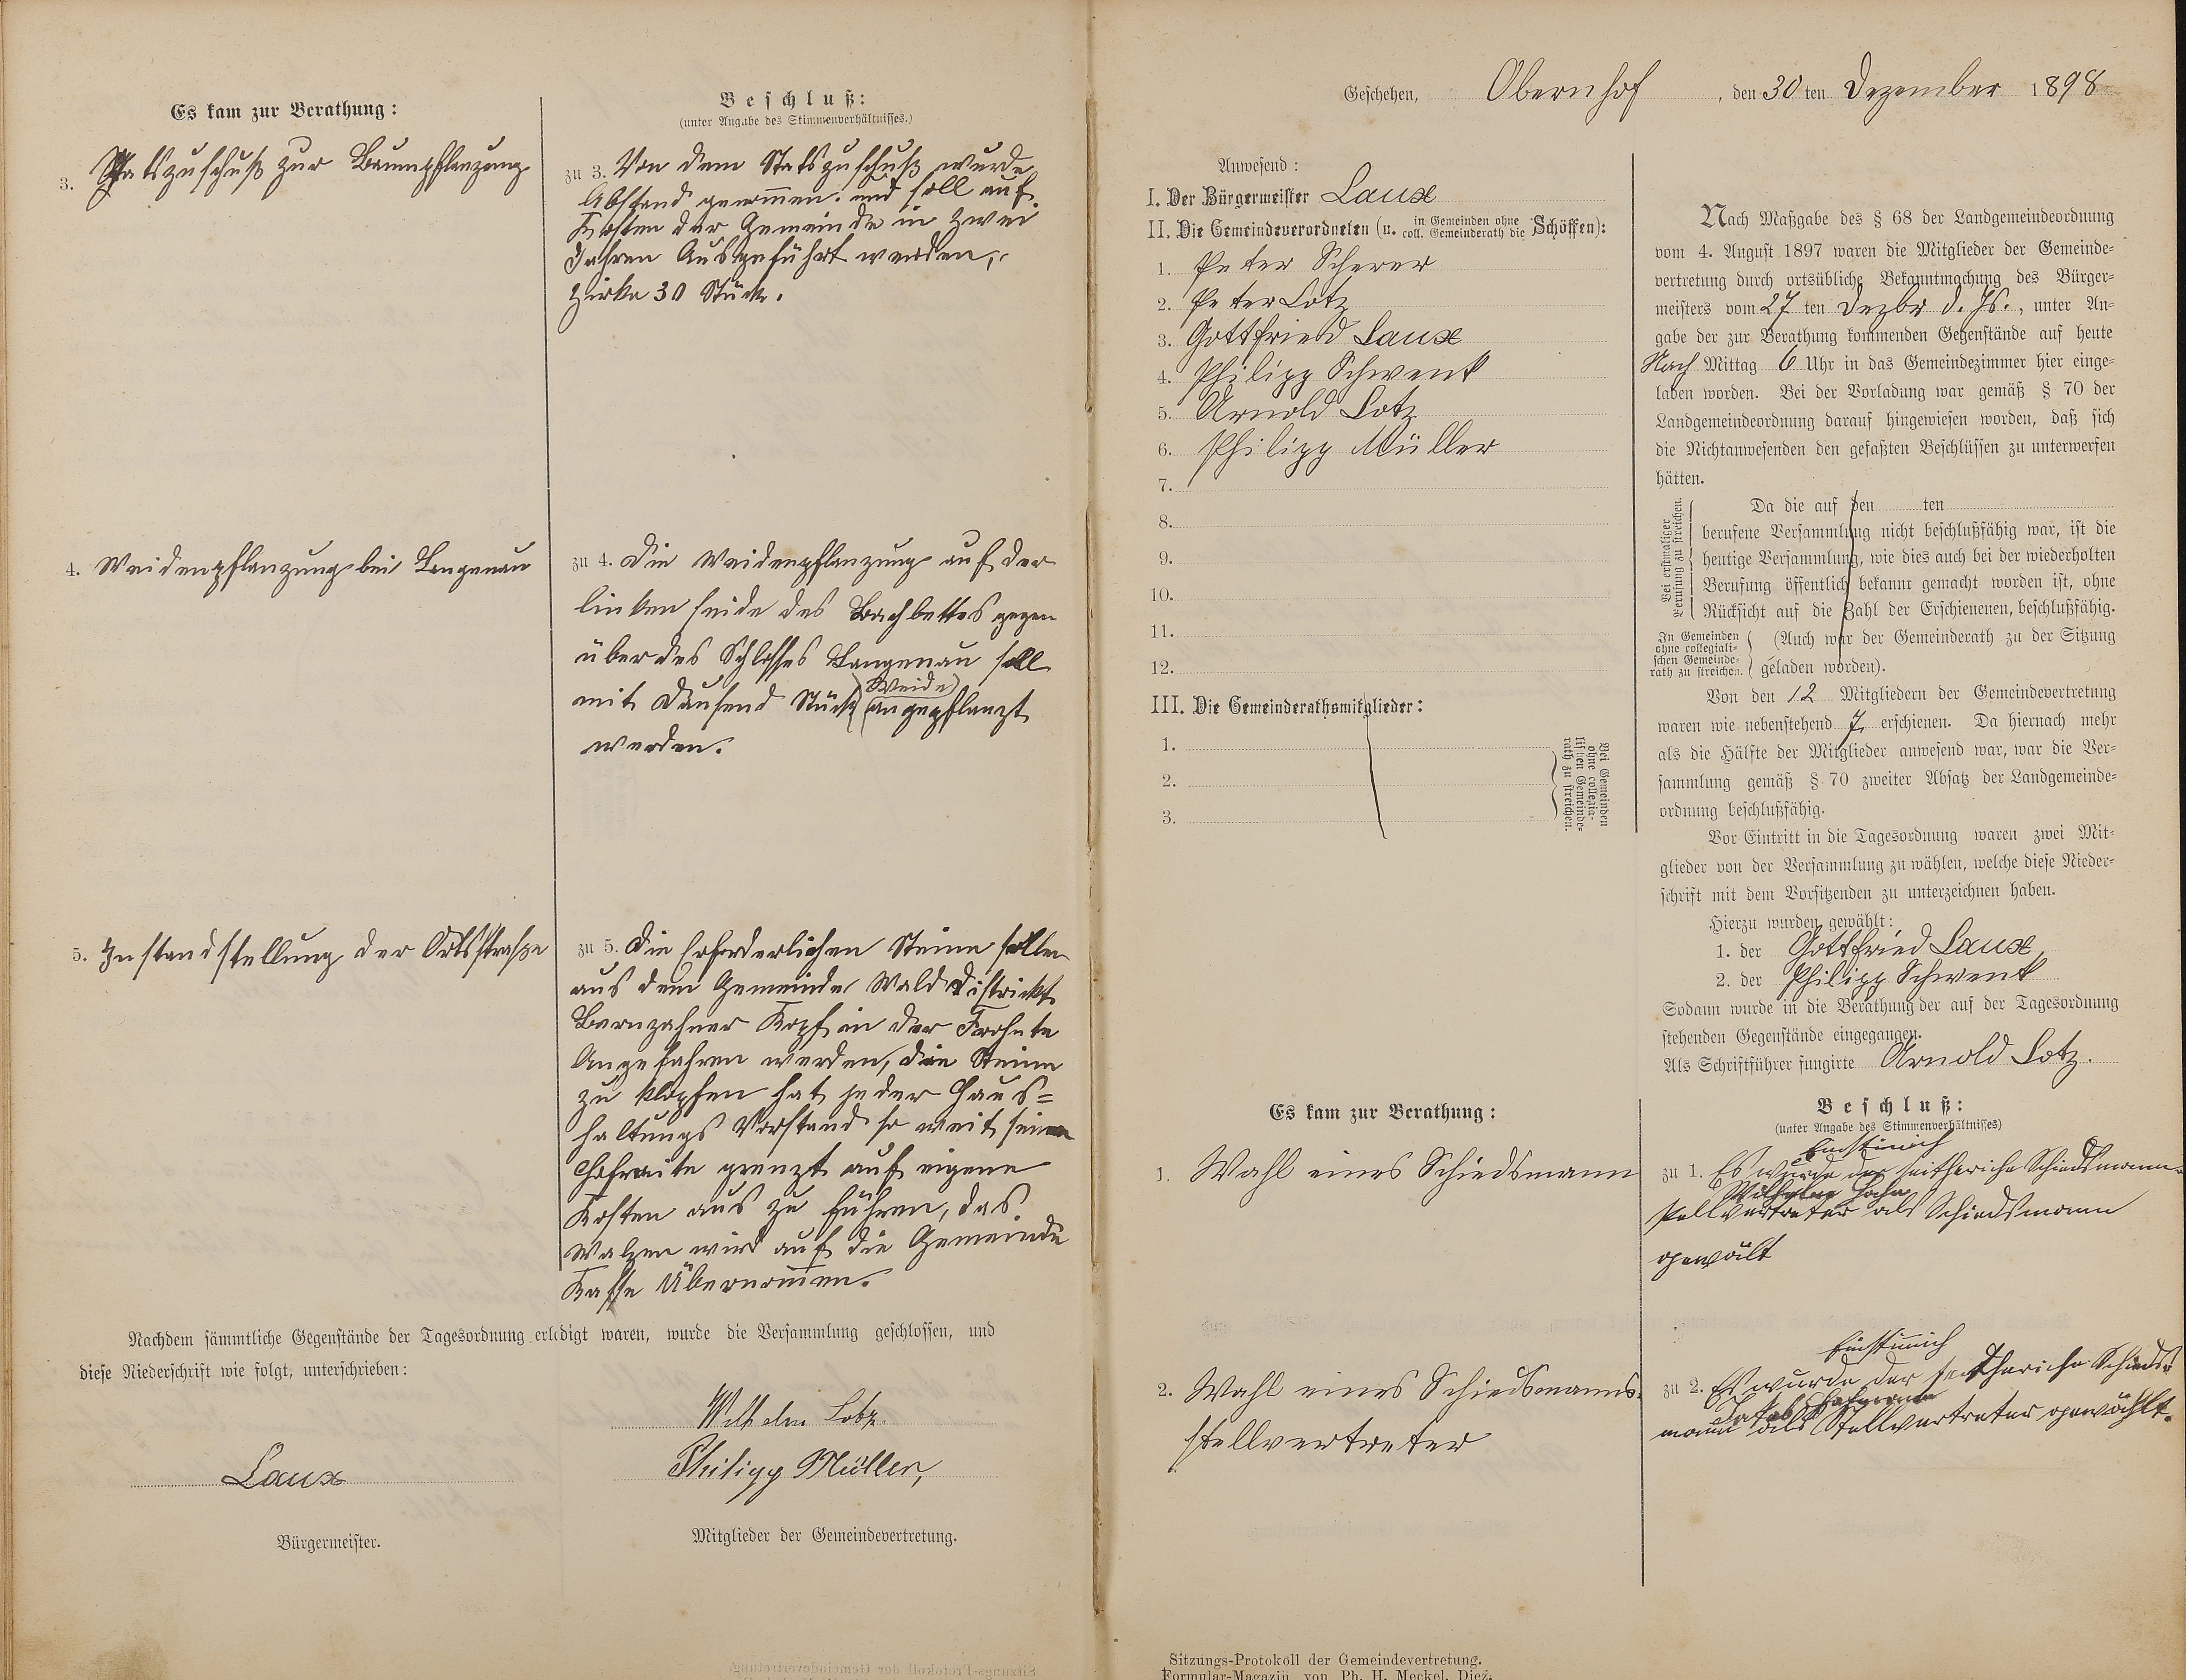 Es kam zur Berathung:
Beschluß:
(unter Angabe des Stimmenverhältnisses.)
3. Statszuschuß zur Baumpflanzung
zu 3. Von dem Statszuschuß wurde
Abstand genommen. und soll auf
Kosten der Gemeinde in zwei
Jahren Ausgeführt werden,
zirka 30 Stück.
4. Weidenpflanzung bei Langenau
zu 4. Die Weidenpflanzung auf der
linken seide des Bachbettes gegen
über des Schlosses Langenau soll
mit Dausend Stück (Weide) angepflanzt
werden.
5. Instandstellung der Ortsstraße
zu 5. Die Erforderlichen Steine sollen
aus dem Gemeinde Wald Districkt
Kopf in der Frohnte
Angefahren werden, die Steine
zu klopfen hat jeder Haus=
haltungs Vorstand so weit seine
Hofraite grenzt auf eigene
Kosten aus zu führen, das
Walzen wird auf die Gemeinde
Kasse Übernommen.
Nachdem sämmtliche Gegenstände der Tagesordnung erledigt waren, wurde die Versammlung geschlossen, und
diese Niederschrift wie folgt, unterschrieben:
Wilhelm Lotz
Philipp Müller,
Laux
Bürgermeister.
Mitglieder der Gemeindevertretung.
Geschehen, Obernhof, den 30 ten Dezember 1898
Anwesend:
I. Der Bürgermeister Laux
II. Die Gemeindeverordneten (u. in Gemeinden ohne coll. Gemeinderath die Schöffen):
1. Peter Scherer
2. Peter Lotz
3. Gottfried Laux
4. Philipp Schwenk
5. Arnold Lotz
6. Philipp Müller
7.
8.
9.
10.
11.
12.
III. Die Gemeinderathsmitglieder:
1.
2.
3.
Bei Gemeinden
ohne collegia-
lischen Gemeinde-
rath zu streichen.
Nach Maßgabe des § 68 der Landgemeindeordnung
vom 4. August 1897 waren die Mitglieder der Gemeinde-
vertretung durch ortsübliche Bekanntmachung des Bürger-
meisters vom 27 ten Dezbr d. Js., unter An-
gabe der zur Berathung kommenden Gegenstände auf heute
Nach Mittag 6 Uhr in das Gemeindezimmer hier einge-
laden worden. Bei der Vorladung war gemäß § 70 der
Landgemeindeordnung darauf hingewiesen worden, daß sich
die Nichtanwesenden den gefaßten Beschlüssen zu unterwerfen
hätten.
Bei erstmaliger
Berufung zu streichen.
Da die auf den ten
berufene Versammlung nicht beschlußfähig war, ist die
heutige Versammlung, wie dies auch bei der wiederholten
Berufung öffentlich bekannt gemacht worden ist, ohne
Rücksicht auf die Zahl der Erschienenen, beschlußfähig.
In Gemeinden
ohne collegiali-
schen Gemeinde-
rath zu streichen.
(Auch war der Gemeinderath zu der Sitzung
geladen worden).
Von den 12 Mitgliedern der Gemeindevertretung
waren wie nebenstehend 7 erschienen. Da hiernach mehr
als die Hälfte der Mitglieder anwesend war, war die Ver-
sammlung gemäß § 70 zweiter Absatz der Landgemeinde-
ordnung beschlußfähig.
Vor Eintritt in die Tagesordnung waren zwei Mit-
glieder von der Versammlung zu wählen, welche diese Nieder-
schrift mit dem Vorsitzenden zu unterzeichnen haben.
Hierzu wurden gewählt:
1. der Gottfried Laux,
2. der Philipp Schwenk
Sodann wurde in die Berathung der auf der Tagesordnung
stehenden Gegenstände eingegangen.
Als Schriftführer fungirte Arnold Lotz.
Es kam zur Berathung:
Beschluß:
(unter Angabe des Stimmenverhältnisses)
1. Wahl eines Schiedsmann
Einstimmich
zu 1. Es wurde der seitheriche Schiedsmann
Wilhelm Hahn
stellvertreter als Schiedsmann
gewält
2. Wahl eines Schiedsmanns
stellvertreter
Einstimmich
zu 2. Es wurde der seitheriche Schieds=
Jakob
mann als Stellvertreter gewählt.
Sitzungs-Protokoll der Gemeindevertretung.
Formular-Magazin von Ph. H. Meckel, Diez.